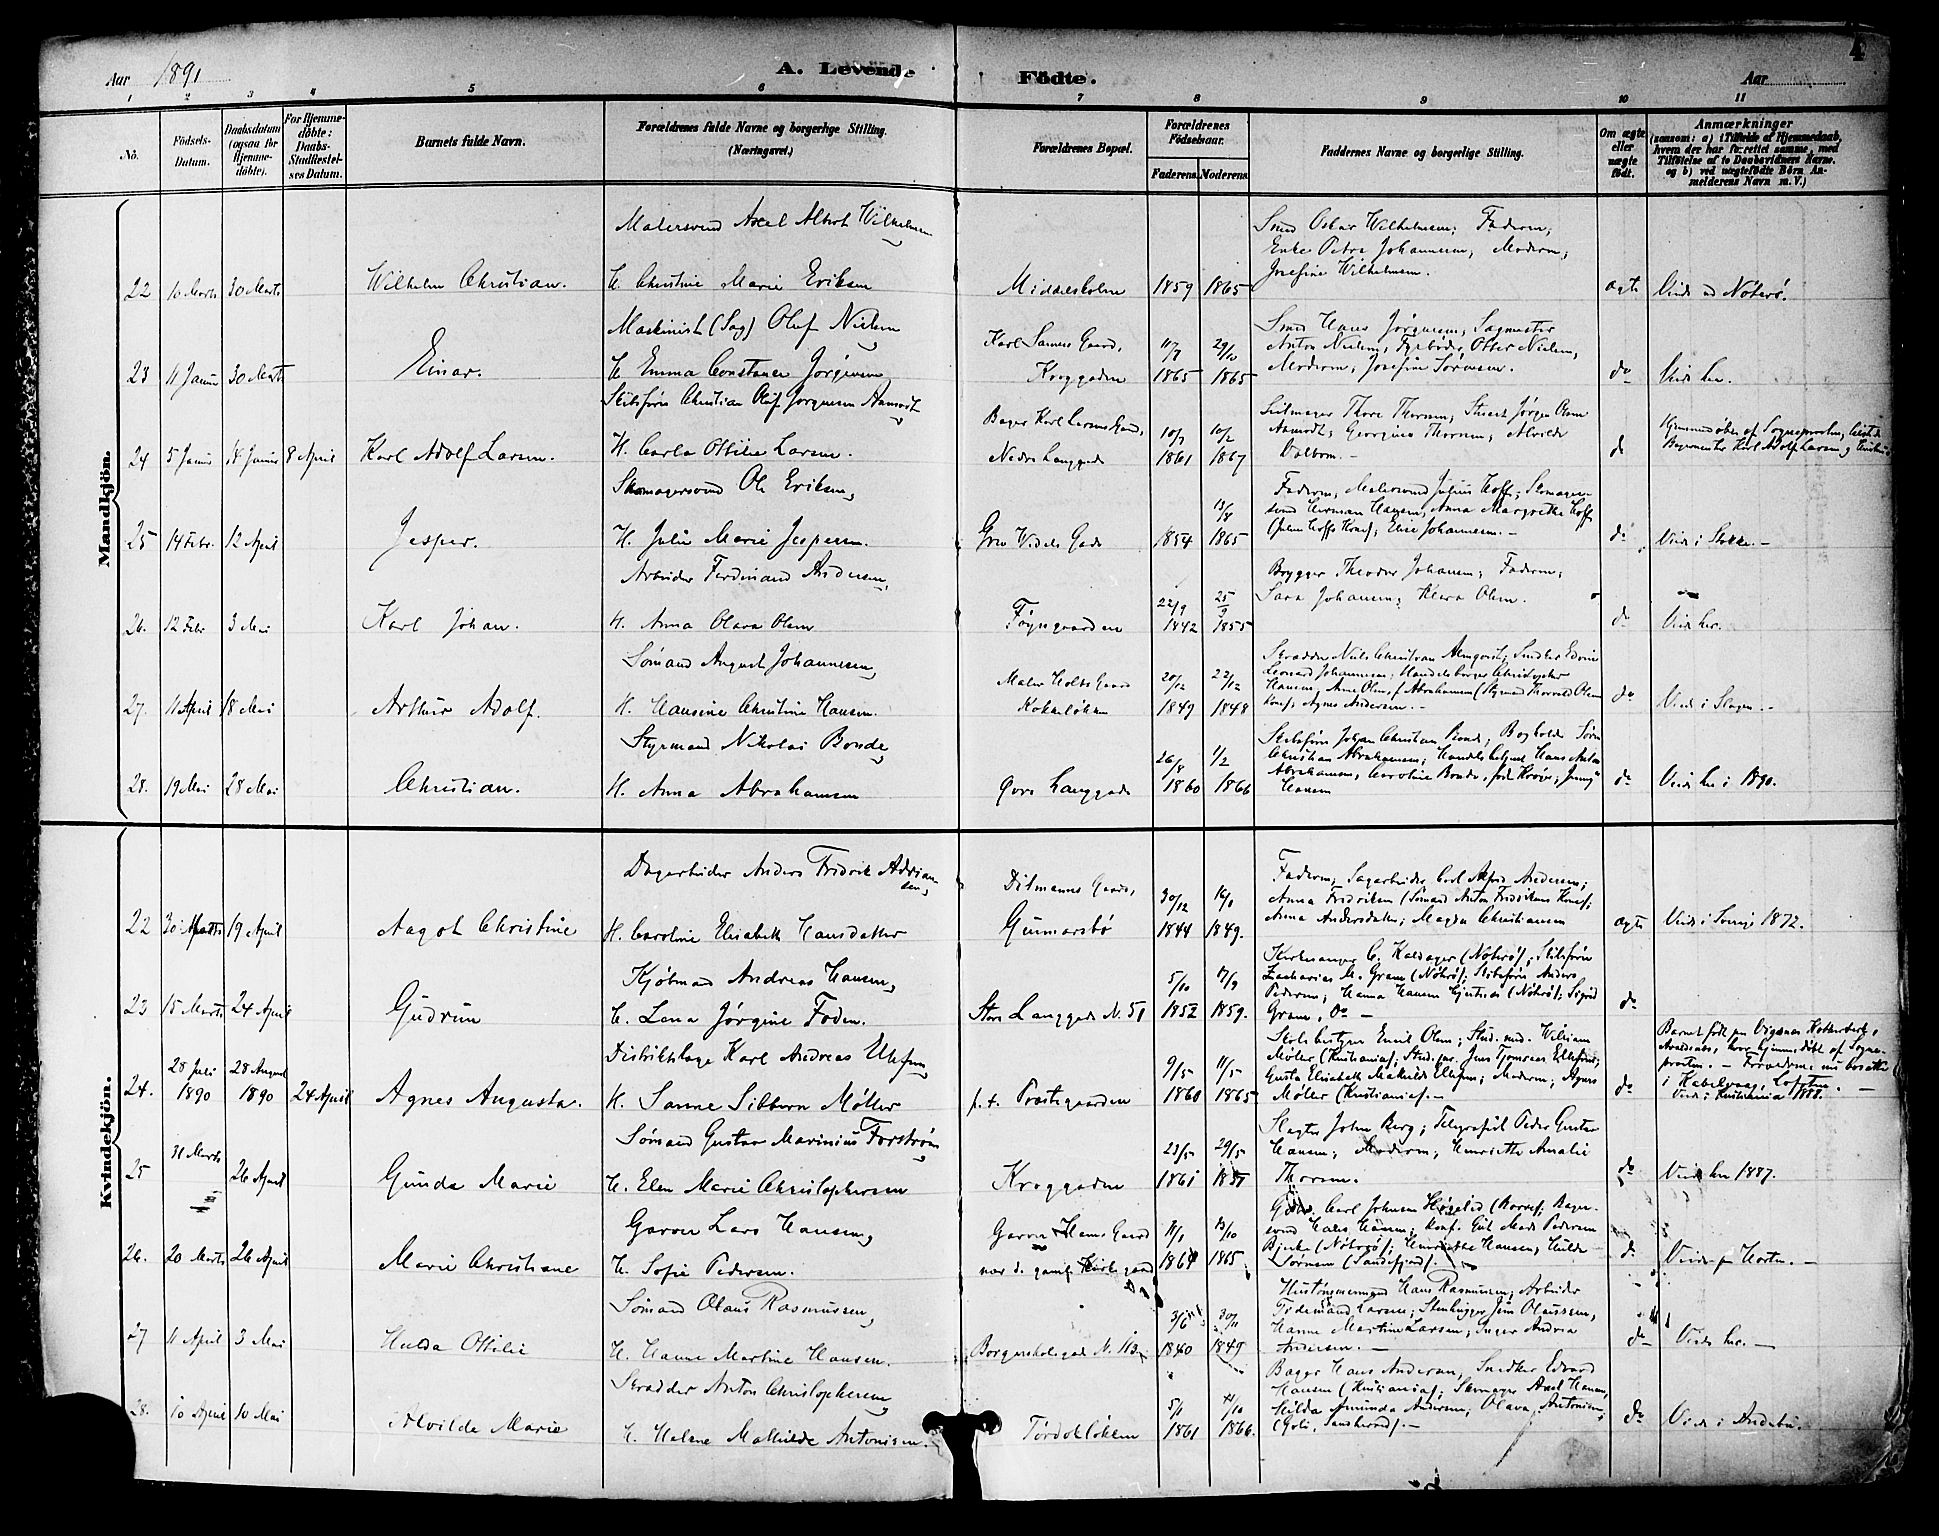 4
Aar 1891
A. Levende Födte.
Aar
1 2 3 4 5 6 7 8 9 10 11
No.
Födsels-Datum.
Daabsdatum (ogsaa for Hjemme-döbte).
For Hjemme-döbte: Daabs-Stadfæstel-ses Datum.
Barnets fulde Navn.
Forældrenes fulde Navne og borgerlige Stilling. (Næringsvei.)
Forældrenes Bopæl.
Forældrenes Födselsaar.
Faderens. Moderens.
Faddernes Navne og borgerlige Stilling.
Om ægte eller uægte födt.
Anmærkninger
(saasom: a) i Tilfælde af Hjemmedaab,
hvem der har forrettet samme, med
Tilföielse af to Daabsvidners Navne.
og b) ved uægtefödte Börn An-
melderens Navn m. V.)
Mandkjön.
Malersvend Axel Albert Wilhelmsen
Smed Oskar Wilhelmsen; Faderen;
Enke Petra Johannesen; Moderen;
Josefine Wilhelmsen.
22 10 Marts 30 Marts Wilhelm Christian. H. Christine Marie Eriksen Middelsholm 1859 1865 ægte Viede paa Nøterø.
Maskinist (Sag) Oluf Nielsen
Karl Sannes Gaard, 11/7 29/10
Smed Hans Jørgensen; Sagmester
Anton Nielsen; Fyrbøder Otter Nielsen;
Moderen; Josefine Sørensen.
23 11 Januar 30 Marts Einar. H. Emma Constance Jørgensen Kroggaden 1865 1865 do Viede her.
Skibsfører Christian Oluf Jørgensen Aamodt
Bager Karl Larsens Gaard, 10/7 10/2
Seilmager Thore Thorsen; Stuert Jørgen Olsen
Aamodt; Georgine Thorsen; Alvilde
24 5 Januar 18 Januar 8 April Karl Adolf Larsen. H. Carla Ottilie Larsen. Nedre Langgade 1861 1867 do
Skomagersvend Ole Eriksen,
13/8
Faderen; Malersvend Julius Hoff; Skomager-
svend Herman Hansen; Anna Margrethe Hoff
(Julius Hoffs Kone); Elise Johannesen. –
25 14 Febr. 12 April Jesper. H. Julie Marie Jespersen. Grev Wedels Gade 1854 1865 do Viede i Stokke. –
Arbeider Ferdinand Andersen,
22/9 25/9
Brygger Theodor Johansen; Faderen;
Sara Johansen; Klara Olsen.
26. 12 Febr 3 Mai Karl Johan. H. Anna Olava Olsen Føyngaarden 1842 1855 do Viede her.
Sømand August Johannesen,
Maler Holts Gaard 20/12 22/12
Skrædder Niels Christian Almqvist; Snedker Edvin
Leonard Johannesen; Handelsborger Christopher
Hansen; Anne Olsen, f. Abrahamsen (Styrmand Thorvald Olsens
Kone); Agnes Andersen. –
27. 11 April 18 Mai Arthur Adolf. H. Hansine Christine Hansen. Kokkeløkken 1849 1848 do Viede i Slagen. –
Styrmand Nikolai Bonde,
26/8 1/2
Skibsfører Johan Christian Bonde; Bogholder Søren
Christian Abrahamsen; Handelsbetjent Hans Anton
Abrahamsen; Caroline Bonde, født Krøger; Jenny
Hansen
28. 19 Mai 28 Mai Christian. H. Anna Abrahamsen Øvre Langgade 1860 1866 do Viede her i 1890.
Kvindekjön.
Dagarbeider Anders Fredrik Adrian-
sen,
Ditmanns Gaard, 30/12 16/1
Faderen; Sagarbeider Carl Alfred Andersen;
Anna Fredriksen (Sømand Anton Fredriksens Kone);
Anna Andersdatter; Magda Christiansen
22 30 Marts 19 April Aagot Christine H. Caroline Elisabeth Hansdatter Gunnarsbø 1844 1849. ægte Viede i Sverige 1872.
Kjøbmand Andreas Hansen,
5/10 17/9
Kirkesanger C. Kaldager (Nøterø); Skibsfører
Zacharias M. Gram (Nøterø); Skibsfører Anders
Pedersen; Hanna Hansen Gjertsen (Nøterø); Sigrid
Gram, do –
23 15 Marts 24 April Gudrun H. Lena Jørgine Foden. Store Langgade N. 51 1852 1859. do
Distriktslæge Karl Andreas Ellefsen,
28 Juli 28 August
9/5 11/5
Skolebestyrer Emil Olsen; Stud. med. William
Møller (Kristiania); Stud. jur. Jens Tjomsaas Ellefsen;
Gusta Elisabeth Mathilde Ellefsen; Moderen; Agnes
Møller (Kristiania). –
24. 1890 1890 24 April Agnes Augusta. H. Sanne Sibbern Møller p. t. Præstegaarden 1860 1865 do
Barnet født paa Vigsnes Kobberverk,
Avaldsnes, hvor hjemmedøbt af Sogne-
præsten. – Forældrene nu bosatte
i Kabelvaag, Lofoten. –
Viede i Kristiania 1888.
Sømand Gustav Marinius Forstrøm,
31 Marts
23/5 29/5
Slagter John Berg; Telegrafist Peder Gustav
Hansen; Moderen; Henriette Amalie
Thorsen.
25 26 April Gunda Marie H. Elen Marie Christophersen Kroggaden 1861 do Viede her 1887.
Garver Lars Hansen,
Carl Johnsen
26. 20 Marts 26 April Marie Christiane H. Sofie Pedersen. nær d. gamle Kirkegaard 1864 1865 do Viede paa Horten. –
Sørensen (Sandefjord). –
Sømand Olaus Rasmussen,
30/11
Hustømmermand Hans Rasmussen; Arbeider
Tidemand Larsen; Stenhugger Jens Olaussen,
Hanne Martine Larsen; Inger Andrea
Andersen. –
27 11 April 3 Mai Hulda Ottilie H. Hanne Martine Hansen. 1840 1849 do Viede her. –
Skrædder Anton Christophersen,
Bager Hans Andersen; Snedker Edvard
Hansen (Kristiania); Skomager Axel Hansen,
Hilda Amunda Andersen; Olava Antonsen,
28. 10 April 10 Mai Alvilde Marie H. Helene Mathilde Antonisen. Tørdalsløkken 1861 1866. do Viede i Andebu.